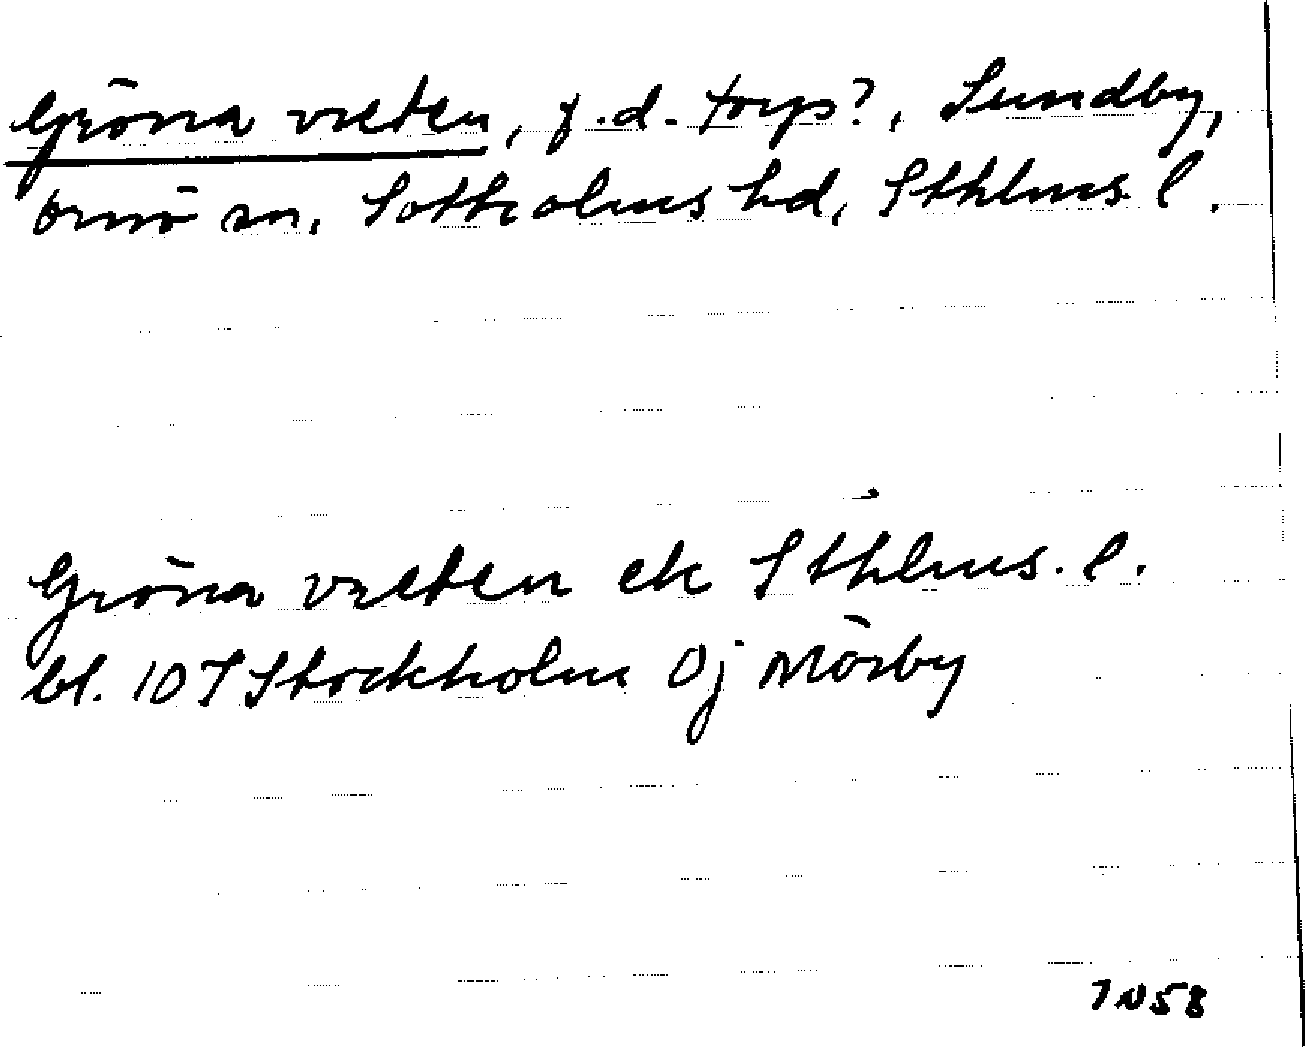 Gröna vreten, f.d. torp?, Sundby,
Ornö sn, Sotholms hd, Sthlms l.
Gröna vreten ek Sthlms. l.
bl. 10I Stockholm Oj Mörby
IN58